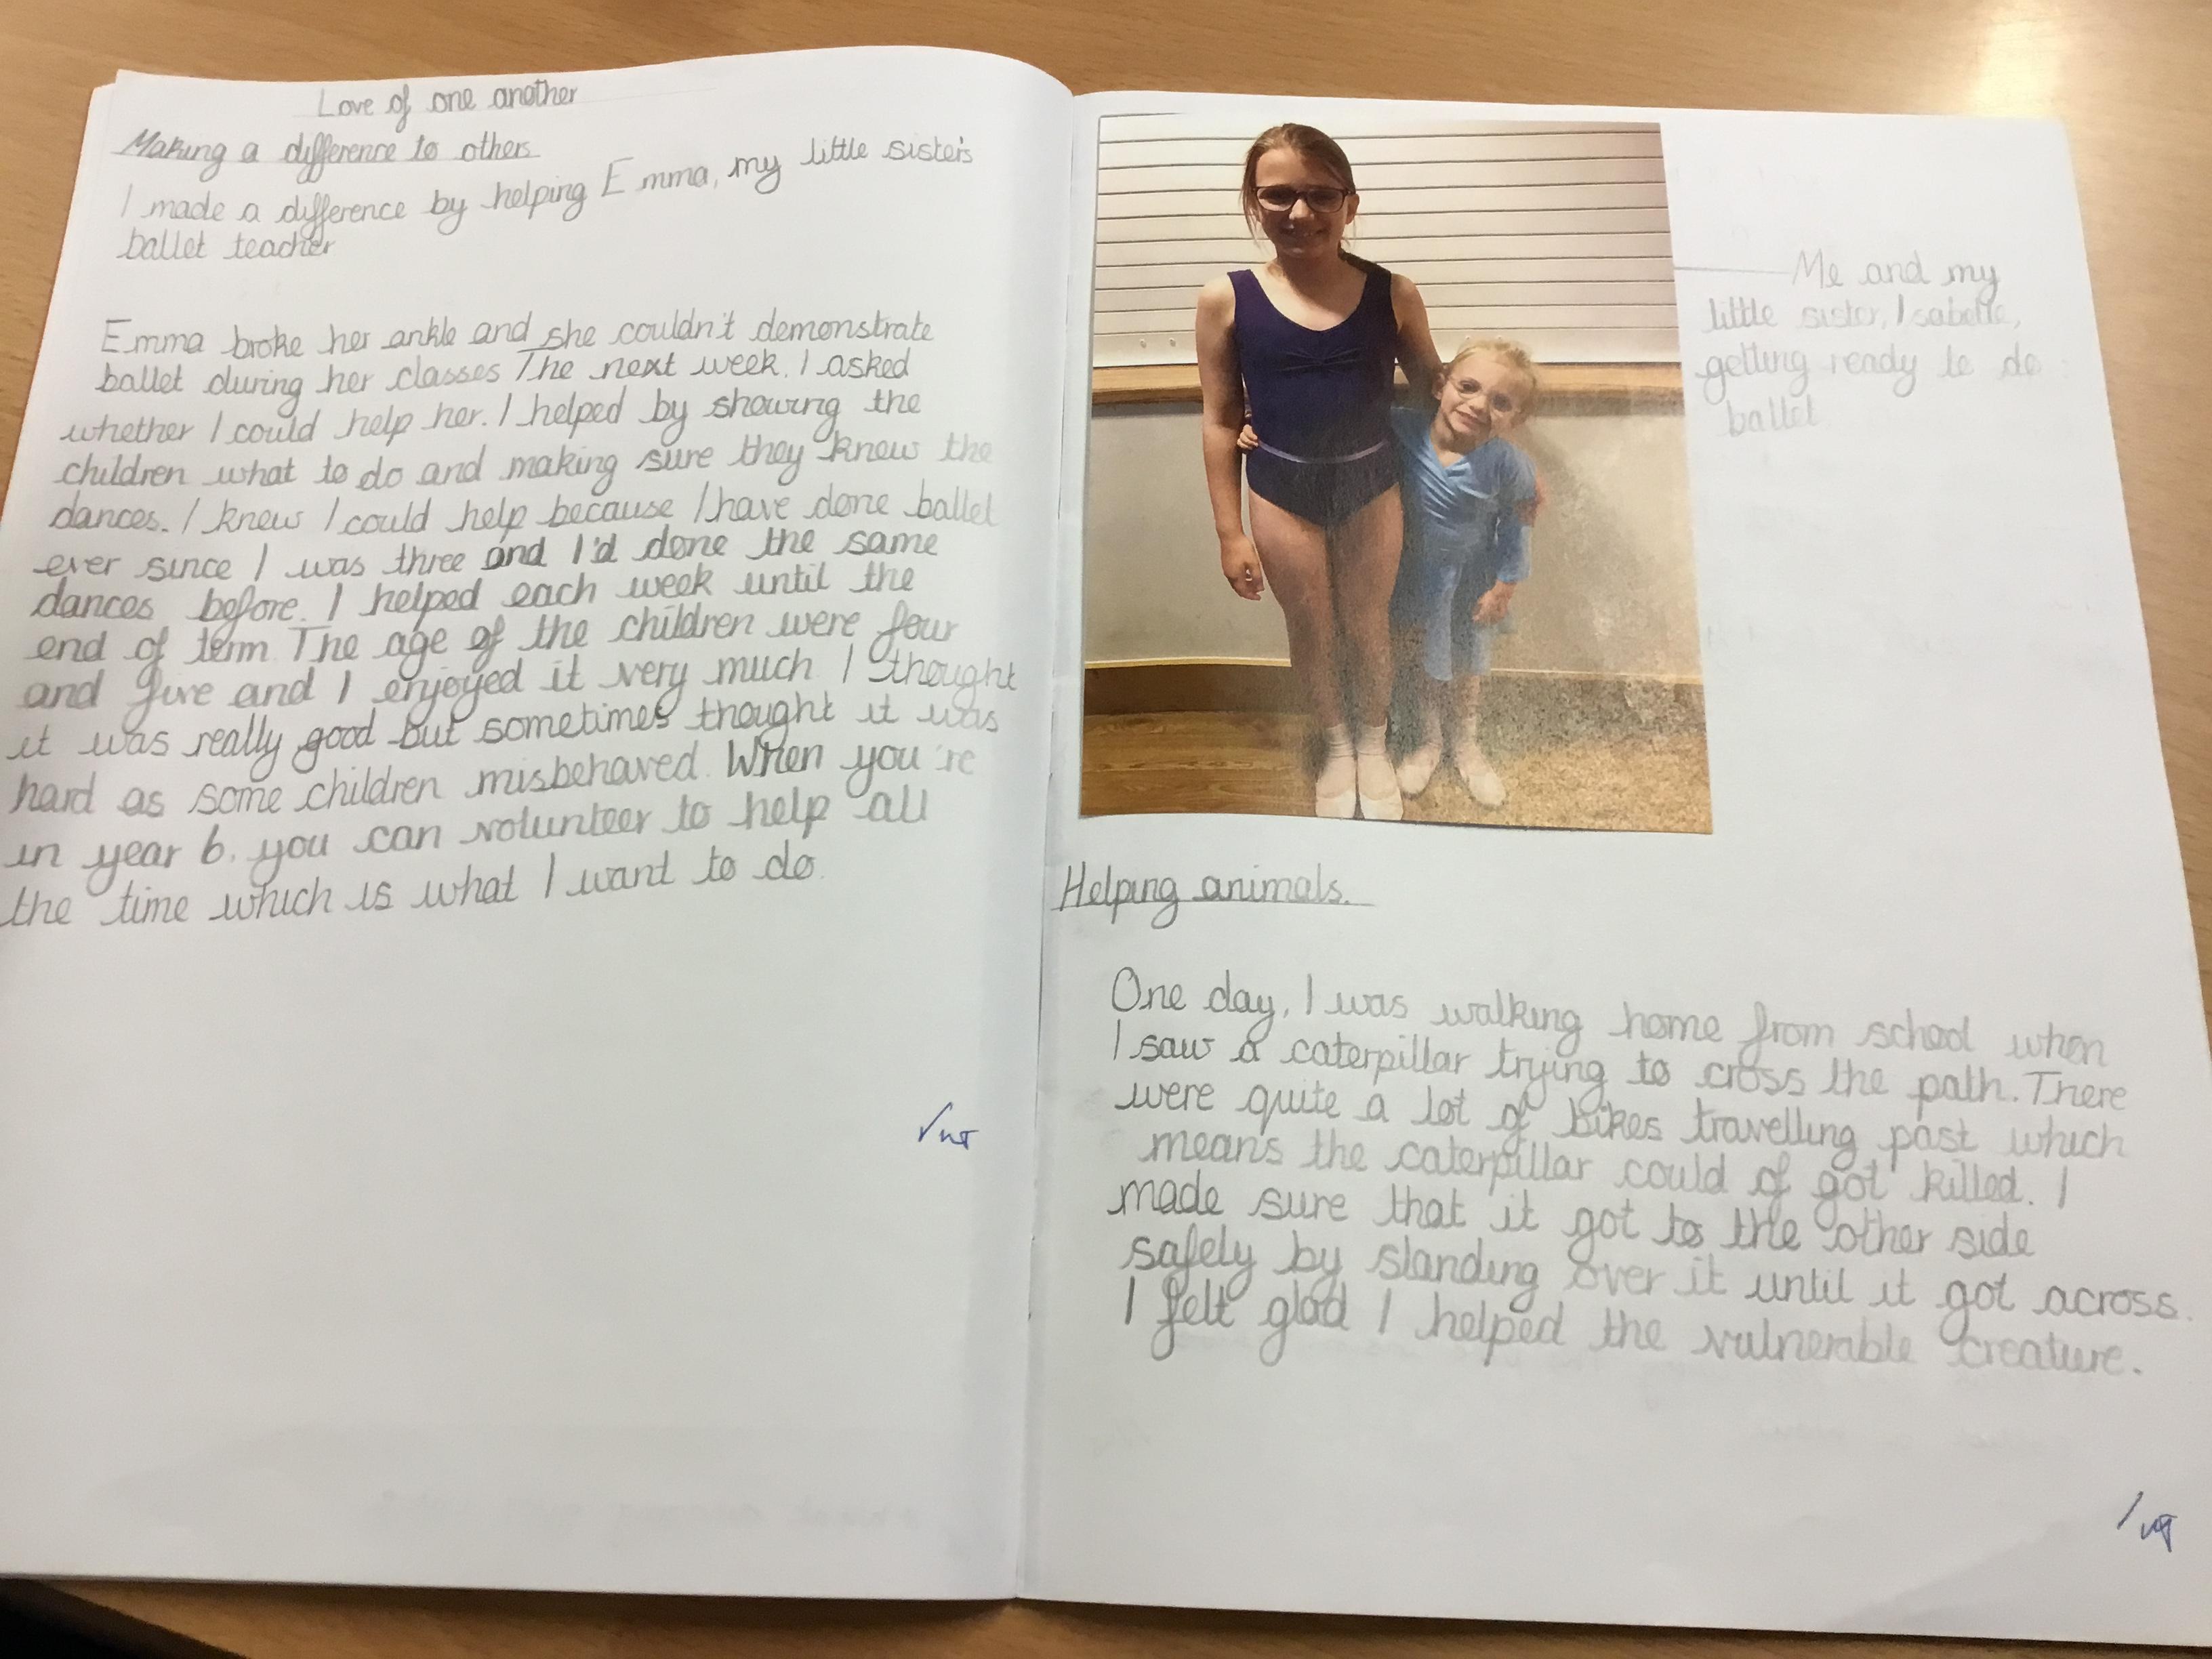 Love of one another
Making a difference to others
I made a difference by helping Emma, my little sister's
ballet teacher
Emma broke her ankle and she couldn't demonstrate
ballet during her classes The next week. I asked
whether I could help her. I helped by showing the
children what to do and making sure they knew the
dances. I knew I could help because I have done ballet
ever since I was three and I'd done the same
dances before. I helped each week until the
end of term The age of the children were four
and five and I enjoyed it very much I thought
it was really good but sometimes thought it was
hard as some children misbehaved. When you're
in year 6, you can volunteer to help all
the time which is what I want to do.
Me and my
little sister, Isabelle,
getting ready to do
ballet
Helping animals.
One day, I was walking home from school when
I saw a caterpillar trying to cross the path. There
were quite a lot of bikes travelling past which
means the caterpillar could of got killed. I
made sure that it got to the other side
safely by standing over it until it got across.
I felt glad I helped the vulnerable creature.